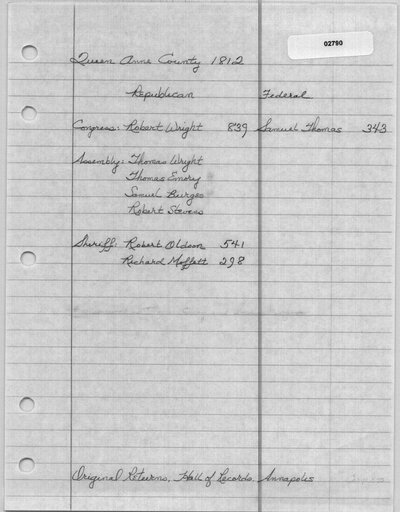 02790
Queen Anne County 1812
Republican Federal
Congress: Robert Wright 839 Samuel Thomas 343
Assembly: Thomas Wright
Thomas Emory
Samuel Burges
Robert Stevens
Sheriff: Robert Oldson 541
Richard Moffett 298
Original Returns, Hall of Records, Annapolis